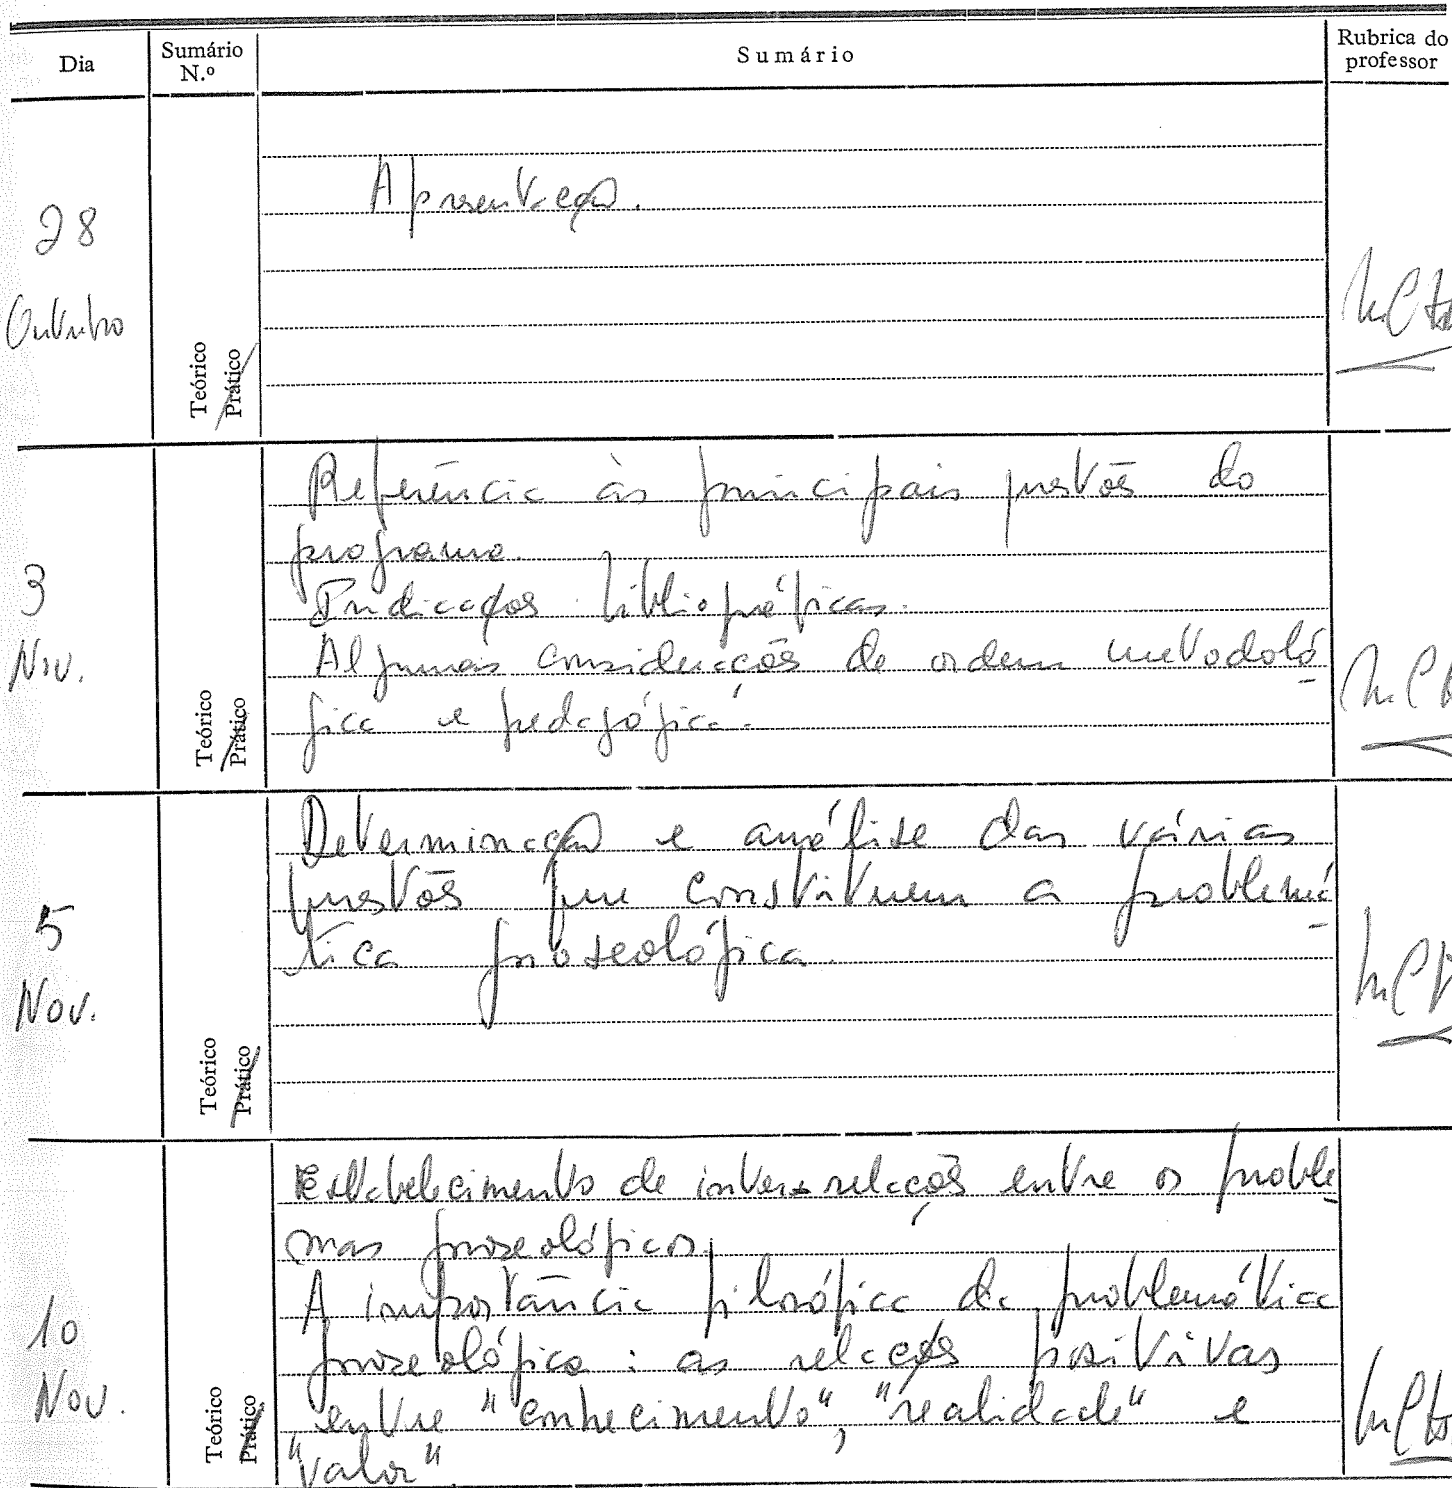 Dia
Sumário
N.º
Sumário
Rubrica do
professor
28
Outubro
Teórico
Prático
Apresentação.
3
Nov.
Teórico
Prático
Referência às principais questões do
programa.
Indicações bibliográficas.
Algumas considerações de ordem metodoló
gica e pedagógica.
5
Nov.
Teórico
Prático
Determinação e análise das várias
questões que constituem a problemá
tica gnoseológica.
10
Nov.
Teórico
Prático
Estabelecimento de inter-relações entre os proble
mas gnoseológicos.
A importância filosófica da problemática
gnoseológica: as relações positivas
entre "conhecimento", "realidade" e
"valor".